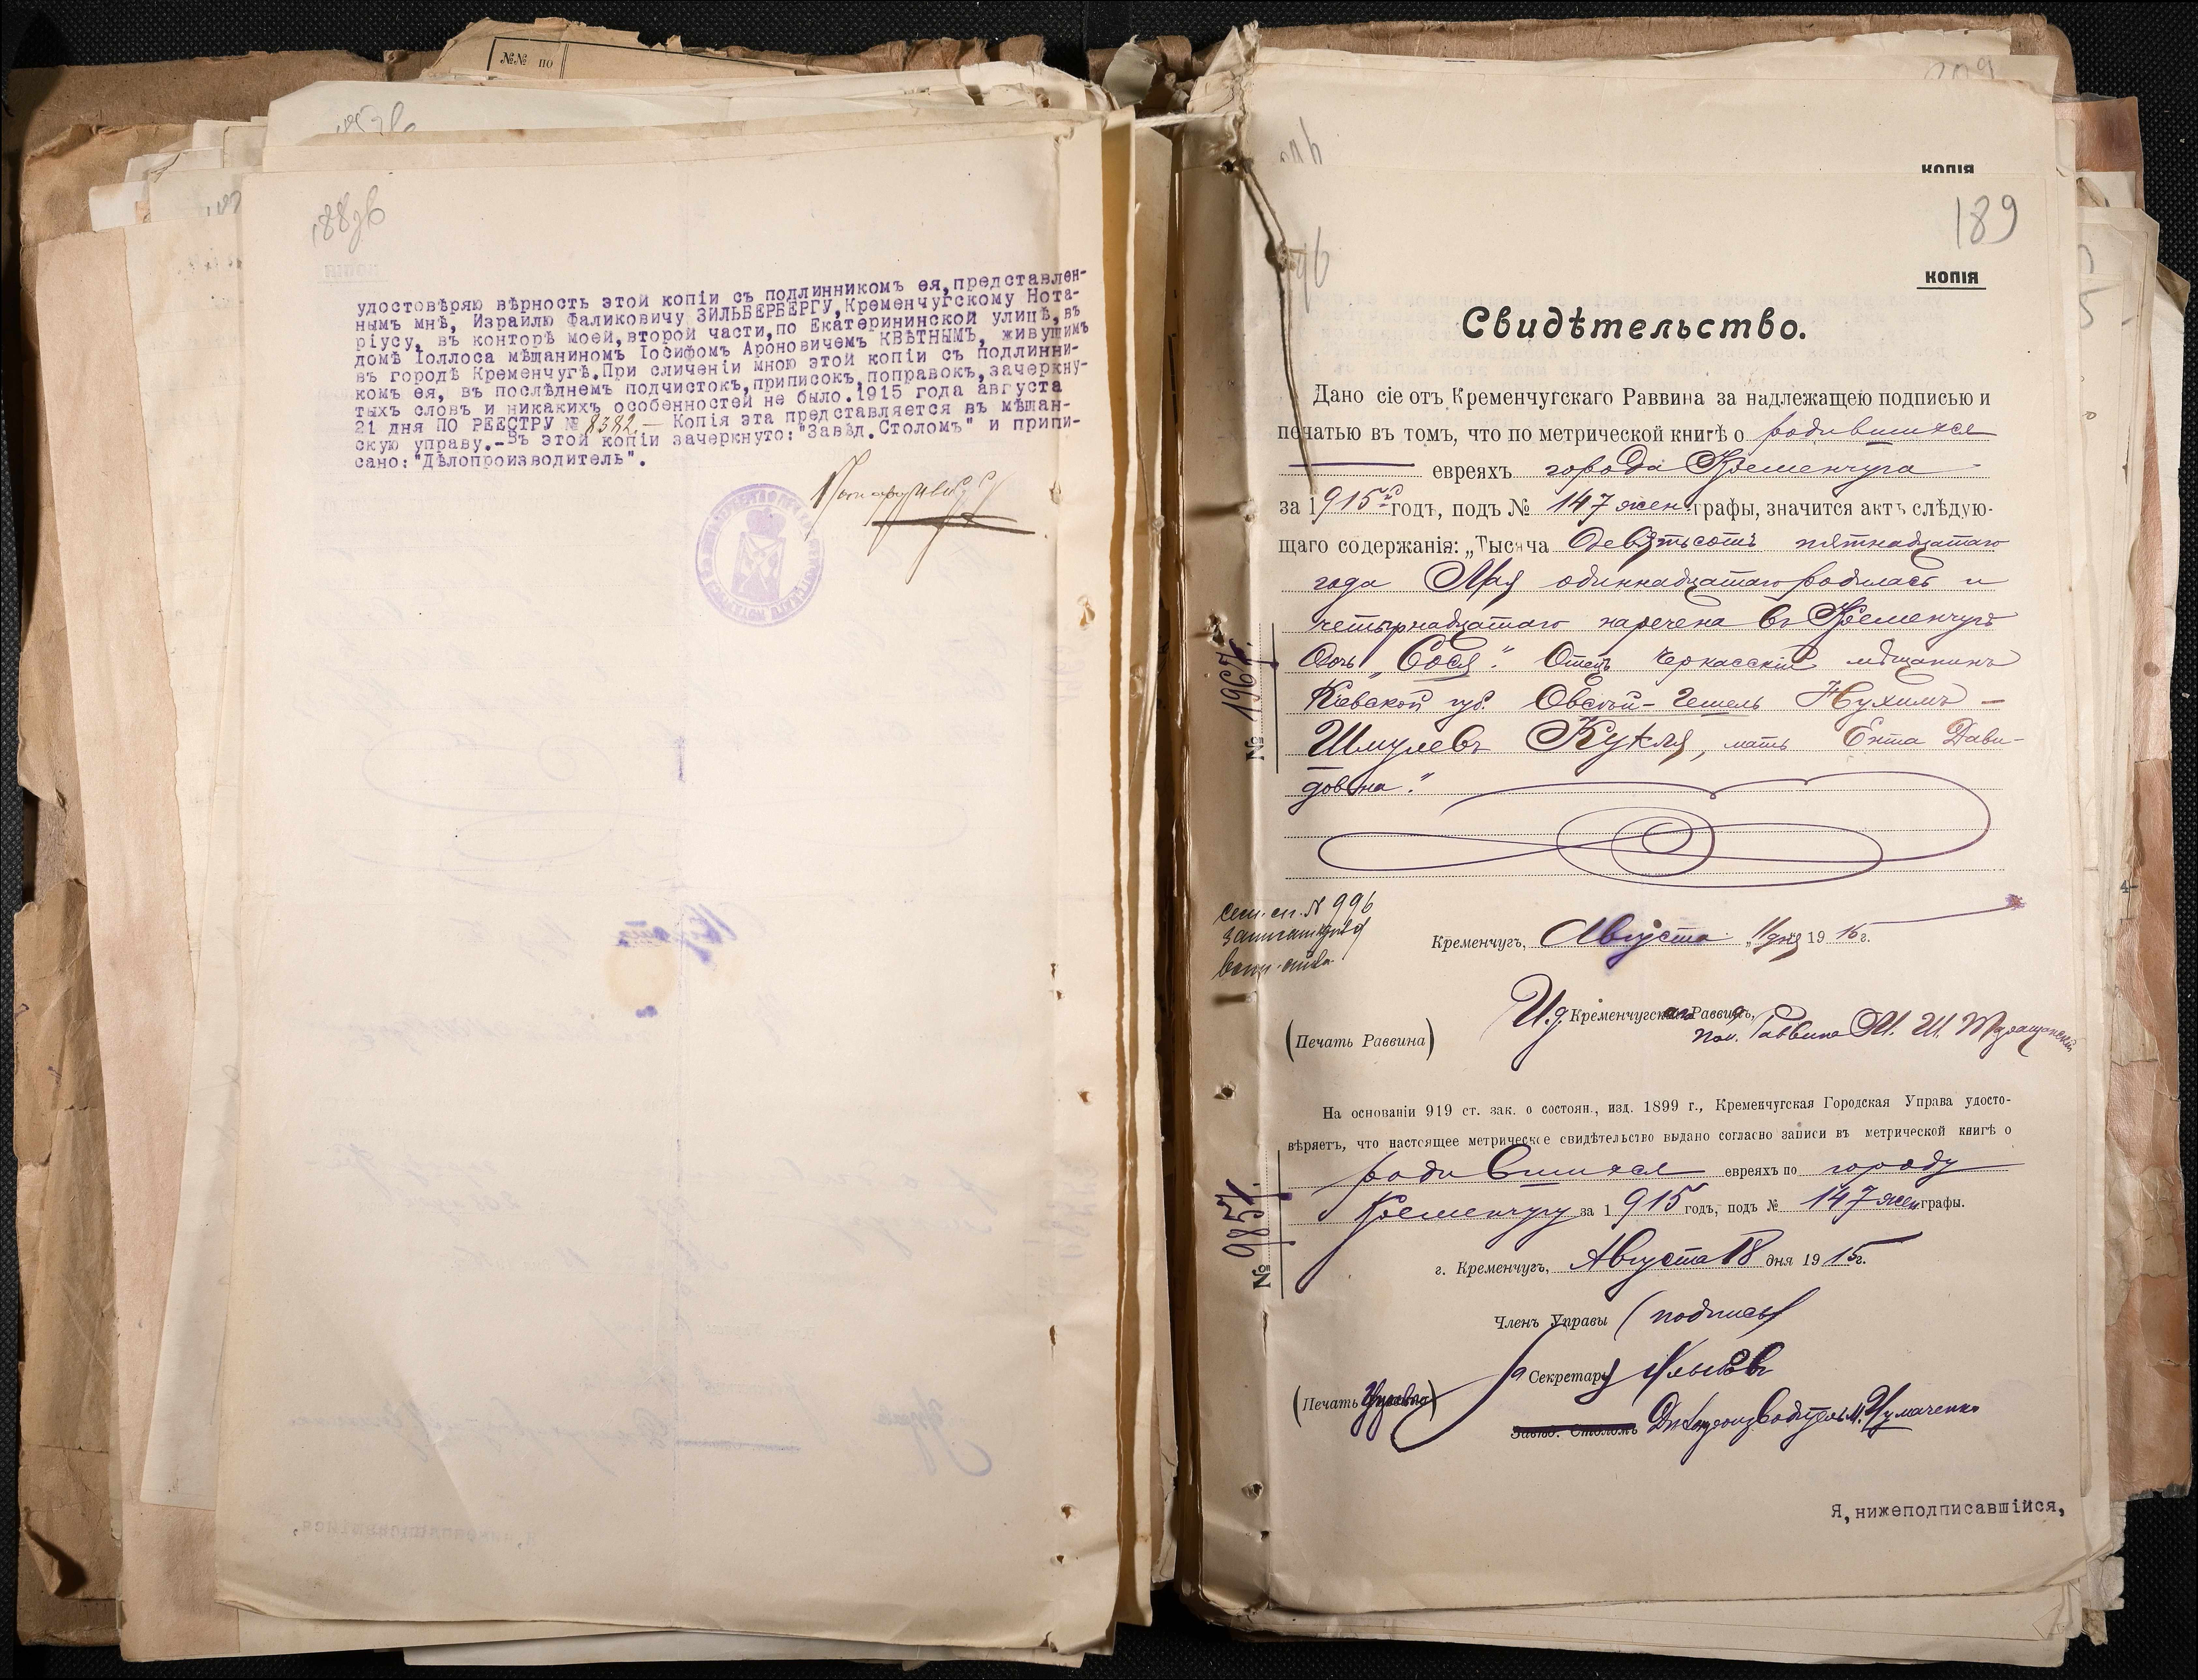 №№ по
188об
удостовѣряю вѣрность этой копіи съ подлинникомъ ея,представлен-
нымъ мнѣ, Израилю Фаликовичу ЗИЛЬБЕРБЕРГУ,Кременчугскому Нота-
ріусу, въ конторѣ моей,второй части,по Екатерининской улицѣ,въ
домѣ Іоллоса мѣщаниномъ Іосифомъ Ароновичемъ КВѢТНЫМЪ, живущимъ
въ городѣ Кременчугѣ.При сличеніи мною этой копіи съ подлинни-
комъ ея, въ послѣднемъ подчистокъ,приписокъ,поправокъ,зачеркну-
тыхъ словъ и никакихъ особенностей не было.1915 года августа
21 дня ПО РЕЕСТРУ № 8382.— Копія эта представляется въ мѣщан-
скую управу.-Въ этой копіи зачеркнуто:"Завѣд.Столомъ" и припи-
сано:"Дѣлопроизводитель".
КОПІЯ
189
КОПІЯ
Свидѣтельство.
Дано сіе отъ Кременчугскаго Раввина за надлежащею подписью и
печатью въ томъ, что по метрической книгѣ о родившихся
евреяхъ города Кременчуга
за 1915 годъ, подъ № 147 жен. графы, значится актъ слѣдую-
щаго содержанія: „Тысяча девятьсотъ пятнадцатаго
года Мая одиннадцатаго родилась и
четырнадцатаго наречена въ Кременчугѣ
дочь „Сося". Отецъ Черкасскій мѣщанинъ
Кіевской губ. Овсей-Гешель Нухимъ-
Шмулевъ Кукля, мать Ента Дави-
довна."
№ 1967.
сем. сп. № 996
Кременчугъ, Августа „11 дня 1915 г.
И.д. Кременчугскаго Раввина,
пом. Раввина
(Печать Раввина)
На основаніи 919 ст. зак. о состоян., изд. 1899 г., Кременчугская Городская Управа удосто-
вѣряетъ, что настоящее метрическое свидѣтельство выдано согласно записи въ метрической книгѣ о
родившихся евреяхъ по городу
Кременчугу за 1915 годъ, подъ № 147 жен графы.
№ 9857.
г. Кременчугъ, Августа 18 дня 1915 г.
Членъ Управы (подпись)
Секретарь Ильяевъ
(Печать Управы)
Завѣд. Столомъ Дѣлопроизводитель И. Чумаченко
Я,нижеподписавшійся,